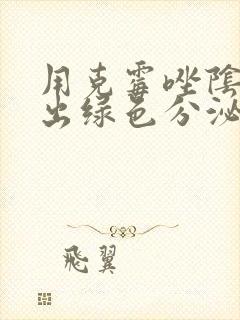 用克霉唑陰
出绿色分泌
飛翼